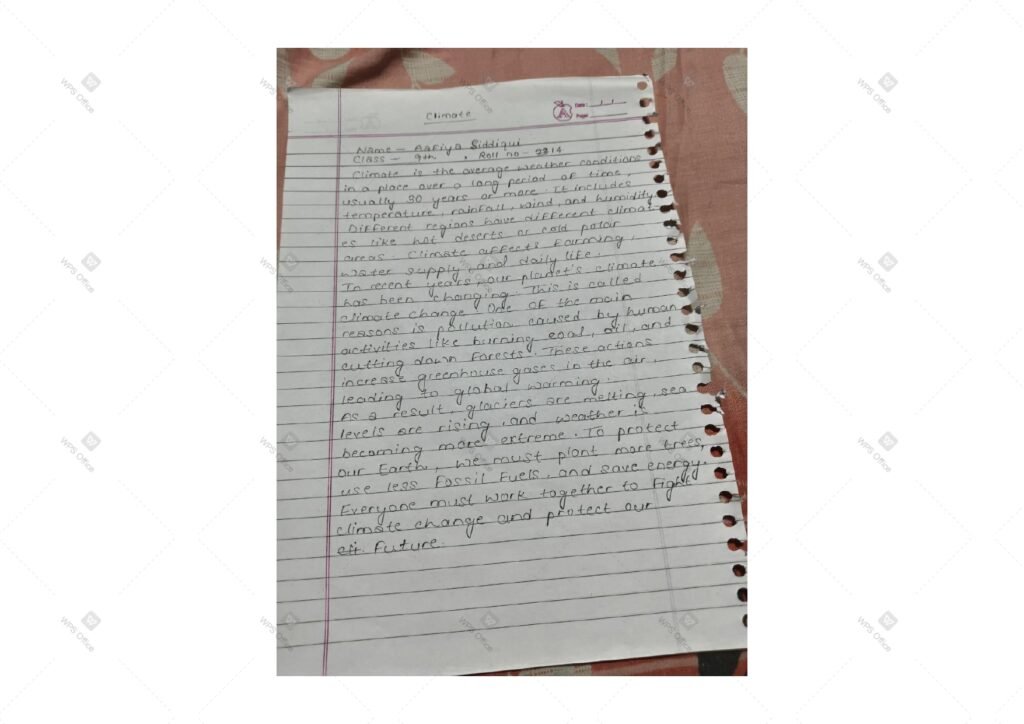 Climate
Date: 
Page: 
Name - Aafiya Siddiqui
Class - 9th , Roll no - 2214
Climate is the average weather conditions
in a place over a long period of time,
usually 30 years or more. It includes
temperature, rainfall, wind, and humidity
Different regions have different climat
es like hot deserts or cold polar
areas. Climate affects farming,
water supply, and daily life.
In recent years, our planet's climate
has been changing. This is called
climate change. One of the main
reasons is pollution caused by human
activities like burning coal, oil, and
cutting down forests. These actions
increase greenhouse gases in the air,
leading to global warming.
As a result, glaciers are melting, sea
levels are rising, and weather is
becoming more extreme. To protect
our Earth, we must plant more trees,
use less fossil fuels, and save energy.
Everyone must work together to fight
climate change and protect our
future.
WPS Office